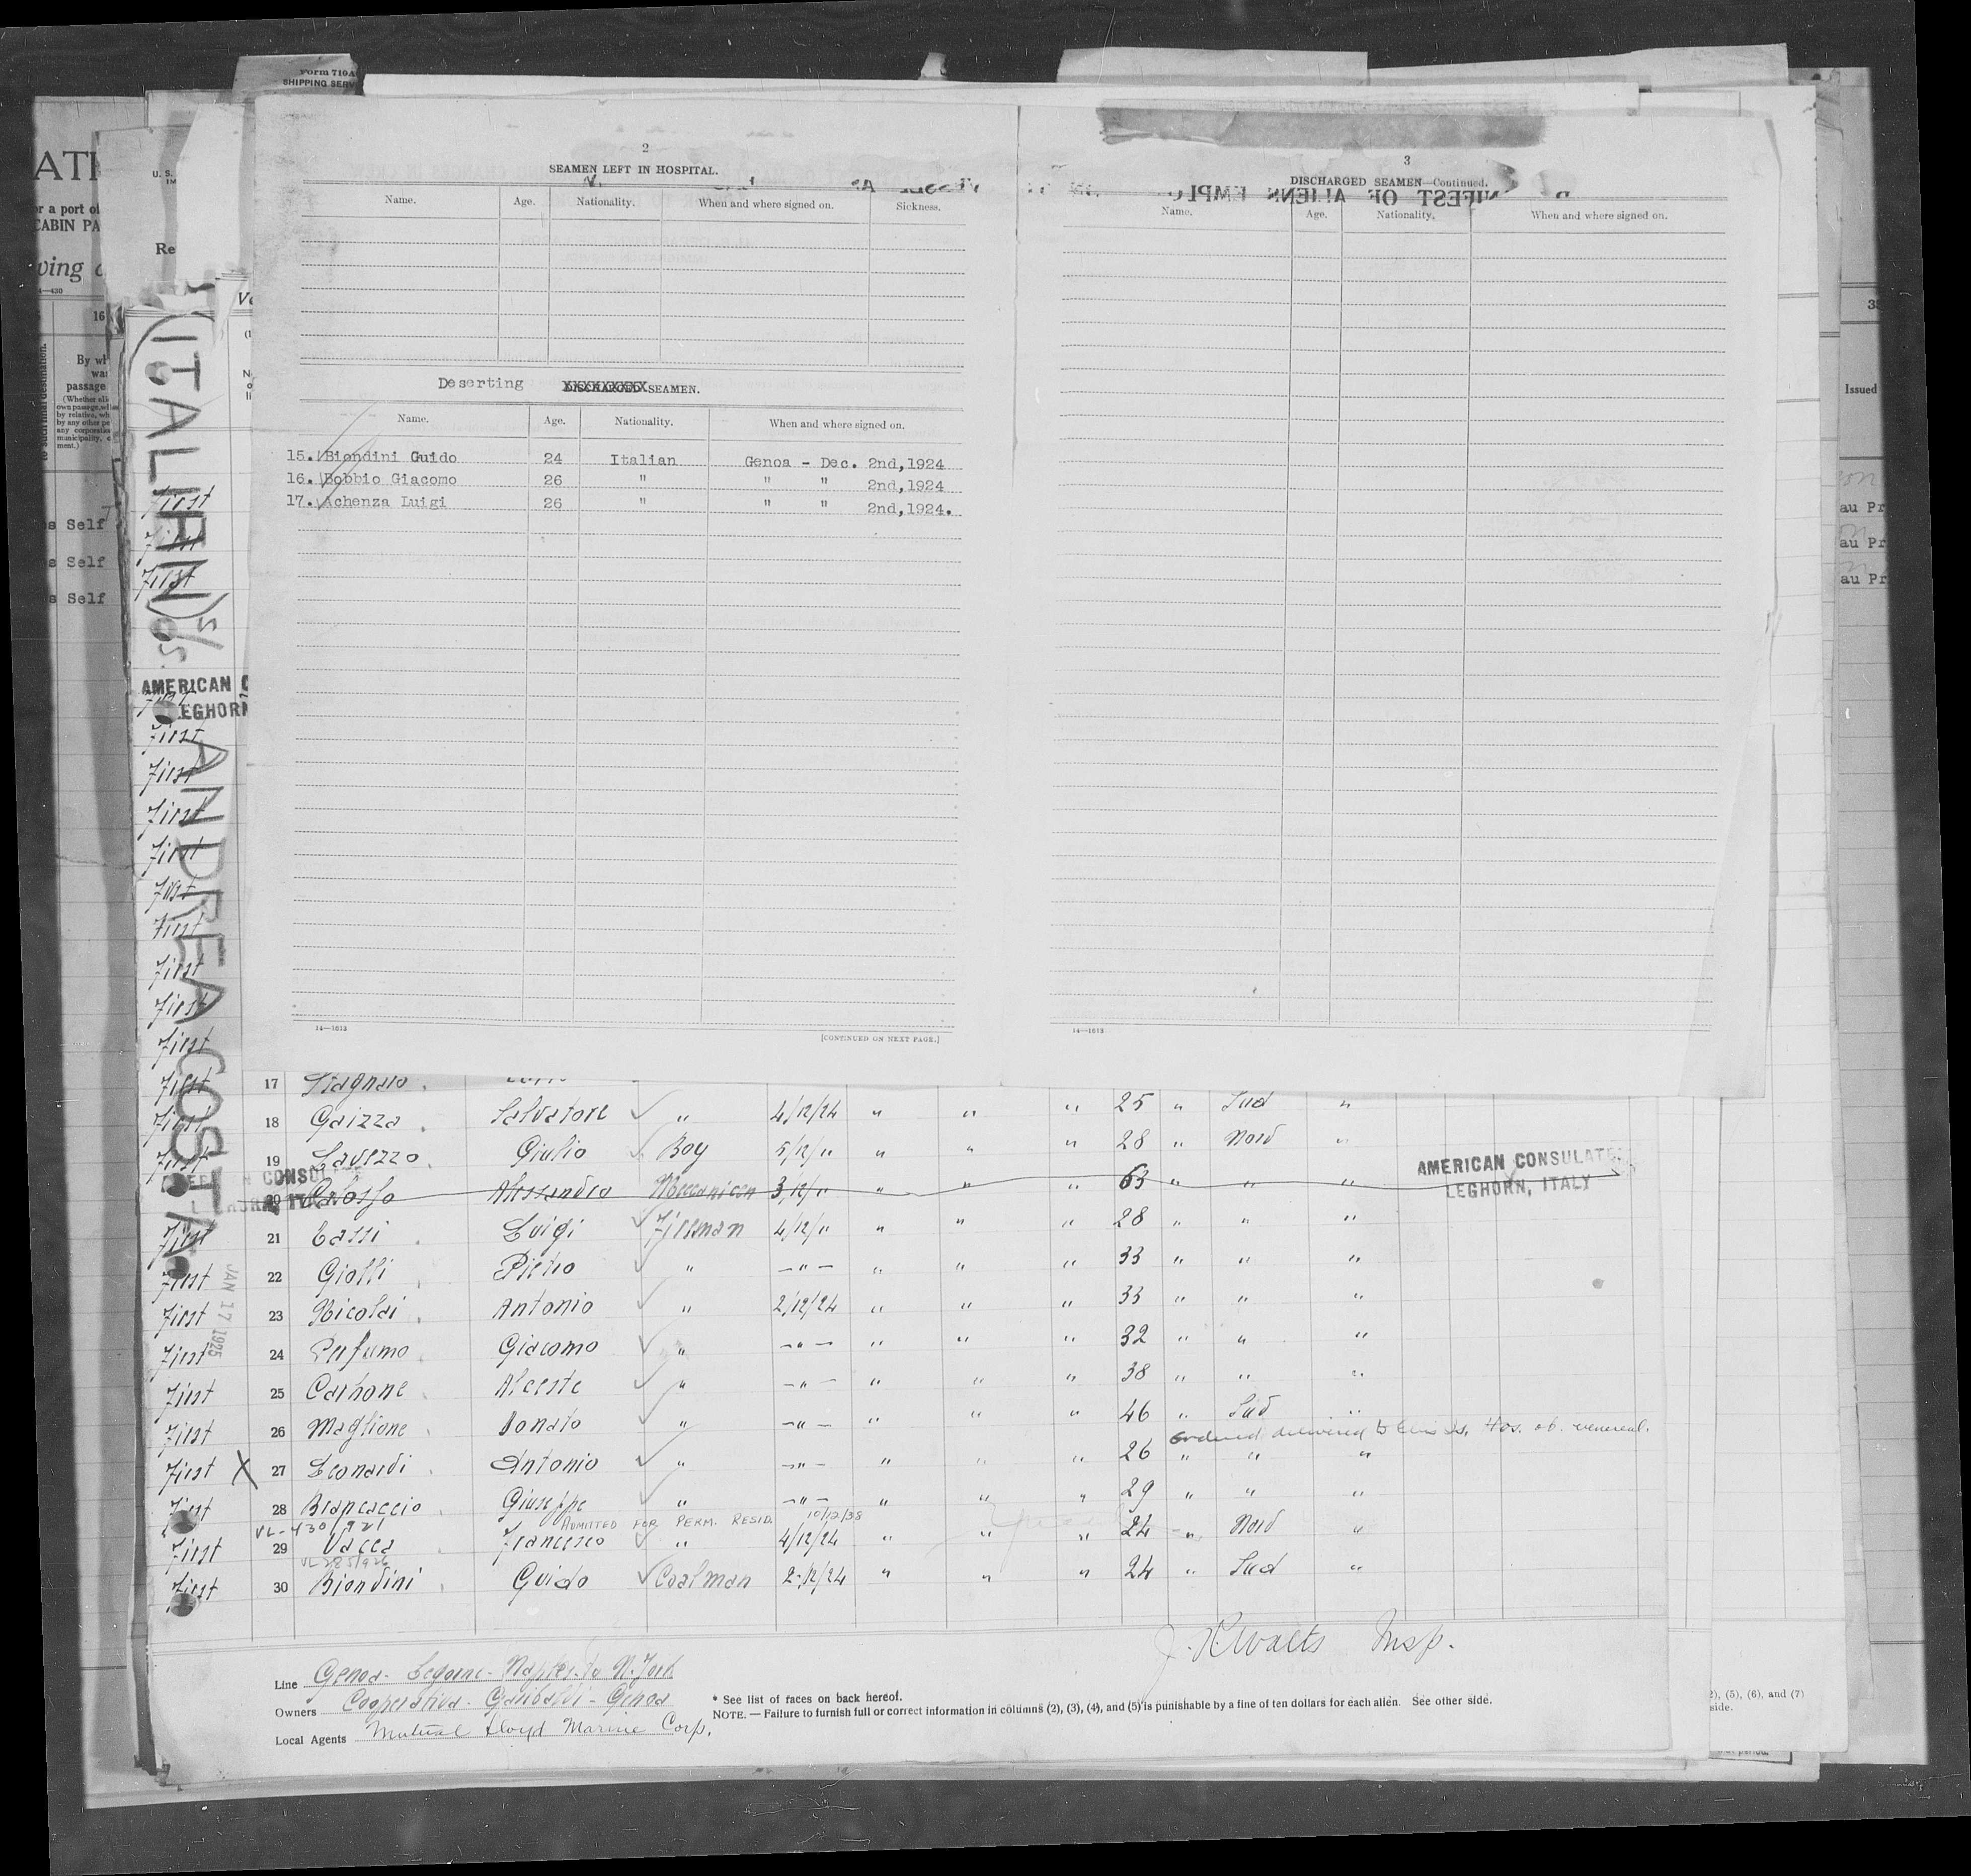 Form 710A
SHIPPING SERV
ATI
U. S.
IM
or a port of
CABIN PA
Re
wing
4—430
16
By wh
was
passage
(Whether ali
own passage, wh
by relative, wh
by any other pe
any corporatio
municipality, o
ment.)
s Self
s Self
s Self
(ITALIAN) S/S. ANDREA COSTA
AMERICAN C
LEGHORN
JAN 17 1925
2
SEAMEN LEFT IN HOSPITAL.
Name. Age. Nationality. When and where signed on. Sickness.
Deserting XXXXXXXX SEAMEN.
Name. Age. Nationality. When and where signed on.
15. Biondini Guido 24 Italian Genoa - Dec. 2nd,1924
16. Bobbio Giacomo 26 " " " 2nd,1924
17. Achenza Luigi 26 " " " 2nd,1924.
14—1613 [CONTINUED ON NEXT PAGE.]
3
DISCHARGED SEAMEN—Continued.
Name. Age. Nationality. When and where signed on.
14—1613
Issued
au Pr
au Pr
au Pr
First 17
First 18 Gaizza Salvatore " 4/12/24 " " " 25 " Sud "
First 19 Lavezzo Giulio Boy 5/12/" " " " 28 " Nord "
AMERICAN CONSULATE
LEGHORN, ITALY
20 Alessandro Meccanicen 3/12/" " " " 63 " " "
First 21 Tassi Luigi Fireman 4/12/" " " " 28 " " "
First 22 Giolli Pietro " —"— " " " 33 " " "
First 23 Nicolai Antonio " 2/12/24 " " " 33 " " "
First 24 Perfumo Giacomo " —"— " " " 32 " " "
First 25 Carbone Alceste " —"— " " " 38 " " "
First 26 Maglione Donato " —"— " " " 46 " Sud "
ordered delivered to pos. venereal.
First X 27 Leonardi Antonio " —"— " " " 26 " " "
First 28 Brancaccio Giuseppe " —"— " " " 29 " " "
VL-430/921 ADMITTED FOR PERM. RESID. 10/12/38
First 29 Vacca Francesco " 4/12/24 " " " 24 " Nord "
First 30 Biondini Guido Coalman 2-12/24 " " " 24 " Sud "
J. R. Watts Insp.
Line Genoa - Legorne - Naples to N. York
Owners Cooperativa - Garibaldi - Genoa
Local Agents Mutual Lloyd Marine Corp.
* See list of races on back hereof.
NOTE. — Failure to furnish full or correct information in columns (2), (3), (4), and (5) is punishable by a fine of ten dollars for each alien. See other side.
2), (5), (6), and (7)
side.